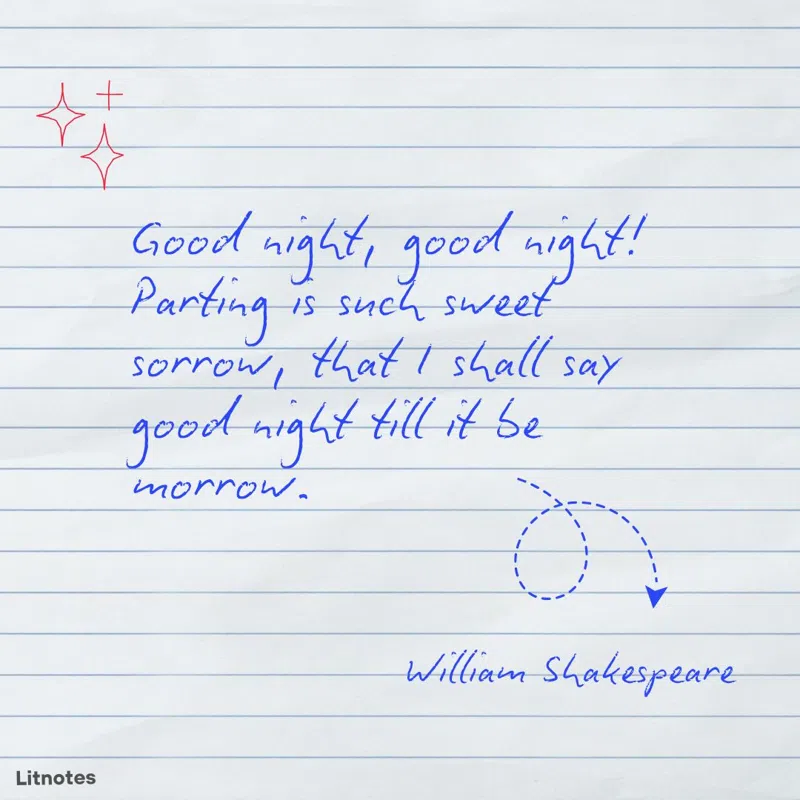 Good night, good night!
Parting is such sweet
sorrow, that I shall say
good night till it be
morrow.
William Shakespeare
Litnotes